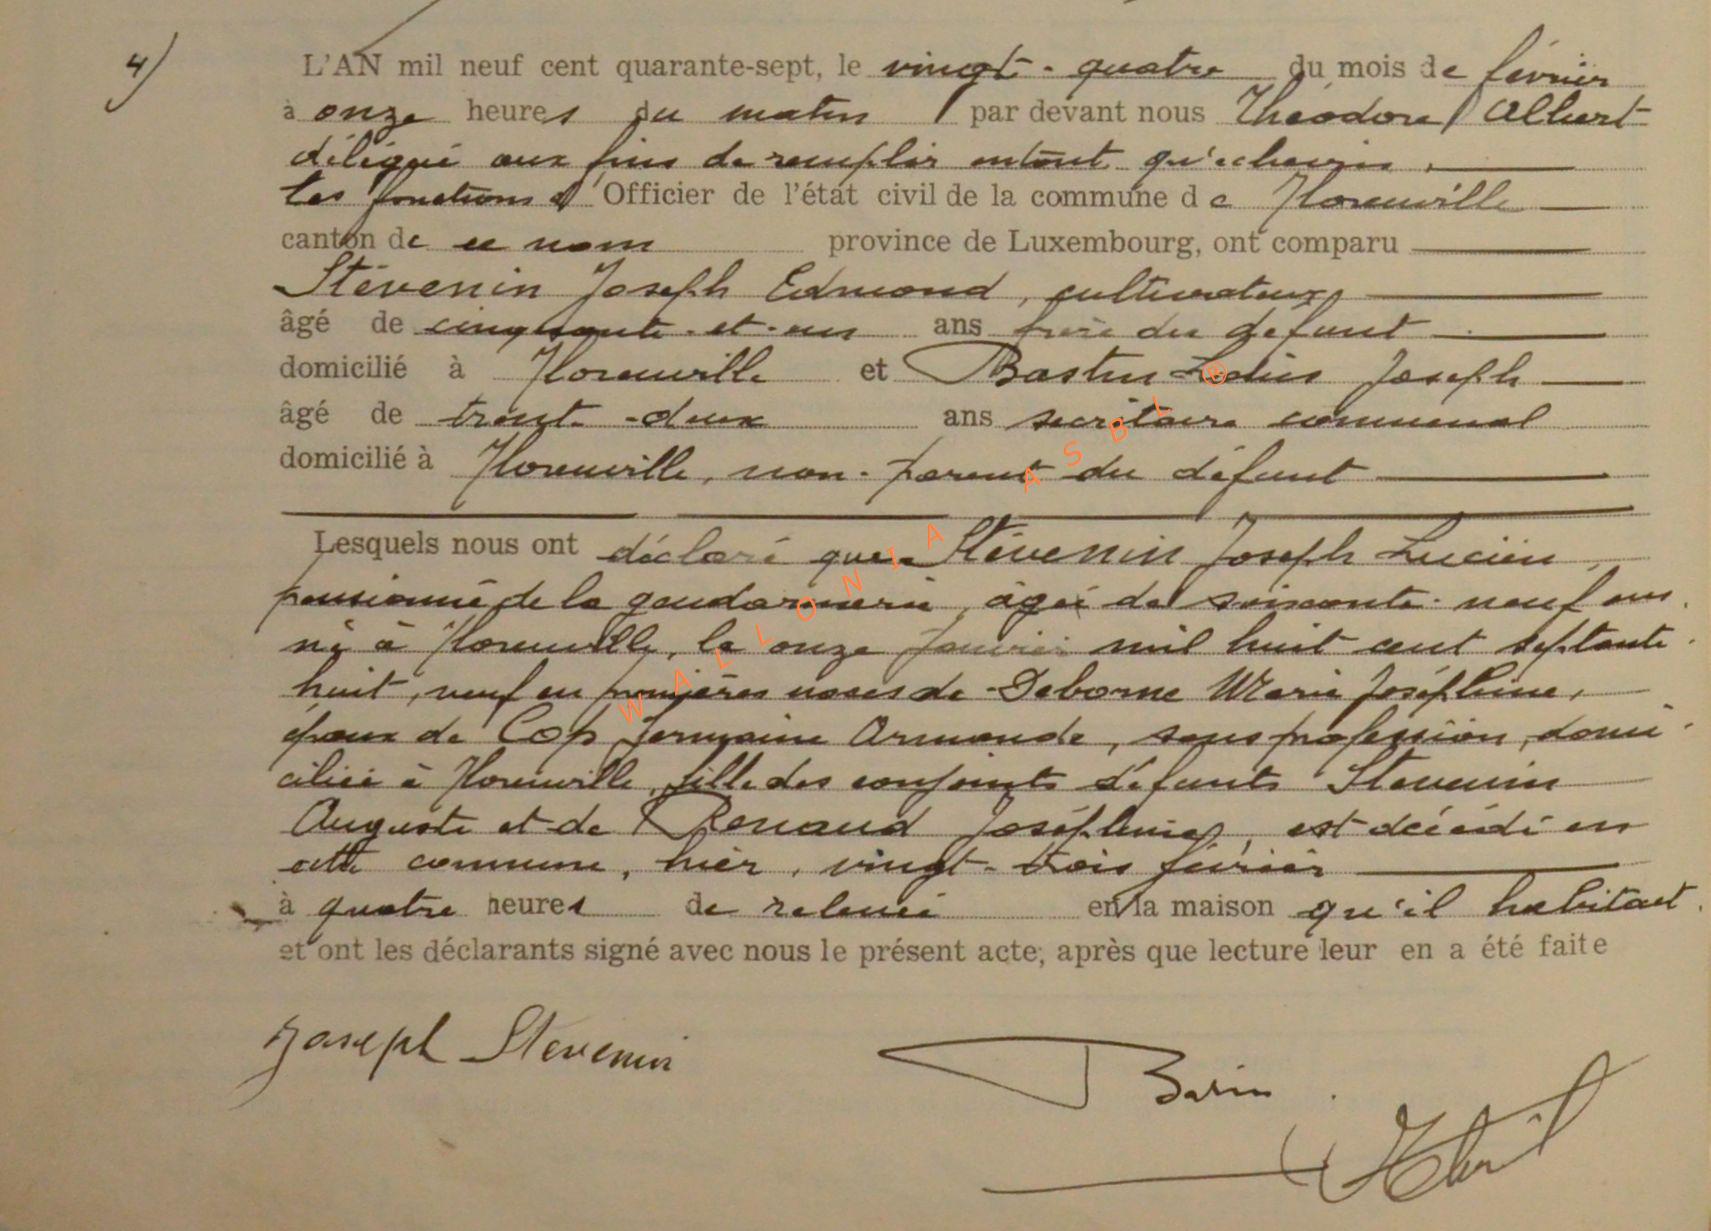 4)
L'AN mil neuf cent quarante-sept, le vingt-quatre du mois de février
à onze heures du matin par devant nous Théodore Albert
délégué aux fins de remplir entant qu'echevin
les fonctions d'Officier de l'état civil de la commune de Florenville
canton de ce nom province de Luxembourg, ont comparu
Stévenin Joseph Edmond, cultivateur
âgé de cinquante-et-un ans frère du défunt
domicilié à Florenville et Bastin Louis Joseph
âgé de trente-deux ans secrétaire communal
domicilié à Florenville, non-parent du défunt
Lesquels nous ont déclaré que Stévenin Joseph Lucien
pensionné de la gendarmerie, âgé de soixante-neuf ans
né à Florenville, le onze janvier mil huit cent septante
huit, veuf en premières noces de Deborne Marie Joséphine,
époux de Cop Germaine Armande, sans profession, domi
ciliée à Florenville, fille des conjoints défunts Stevenin
Auguste et de Renaud Joséphine, est décédé en
cette commune, hier, vingt-trois février
à quatre heures de relevée en la maison qu'il habitait.
et ont les déclarants signé avec nous le présent acte, après que lecture leur en a été faite
Joseph Stevenin
WALLONIA ASBL ®